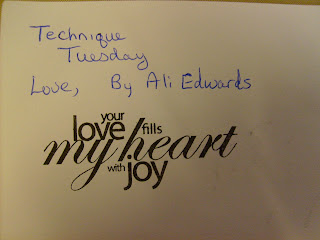 Technique
Tuesday
Love, By Ali Edwards
your
love fills
my heart
with joy